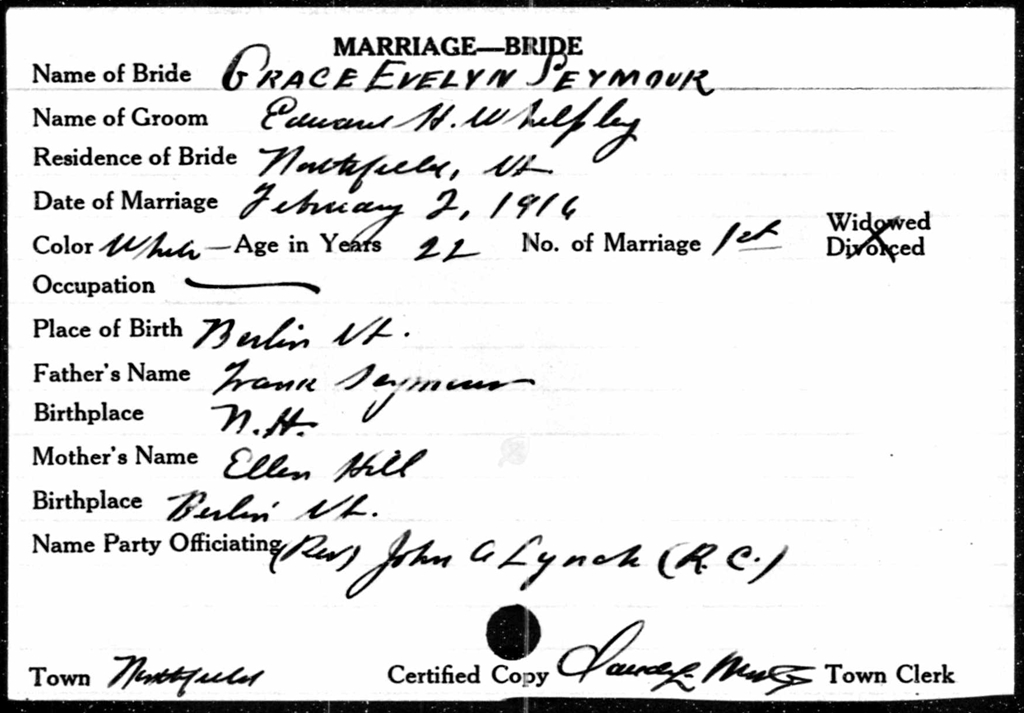 MARRIAGE—BRIDE
Name of Bride GRACE EVELYN SEYMOUR
Name of Groom Edward H. Whelpley
Residence of Bride Northfield, Vt.
Date of Marriage February 2, 1916
Color White — Age in Years 22 No. of Marriage 1st Widowed Divorced
Occupation
Place of Birth Berlin Vt.
Father's Name Frank Seymour
Birthplace N.H.
Mother's Name Ellen Hill
Birthplace Berlin Vt.
Name Party Officiating (Rev) John A Lynch (R.C.)
Town Northfield Certified Copy Town Clerk